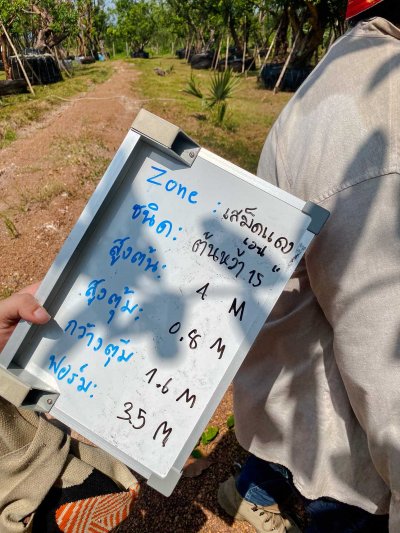 Zone : เสม็ดแดง
ชนิด: ต้นหว้า 15 "เอน"
สูงต้น: 4 M
สูงตุ้ม: 0.8 M
กว้างตุ้ม 1.6 M
ฟอร์ม: 3.5 M